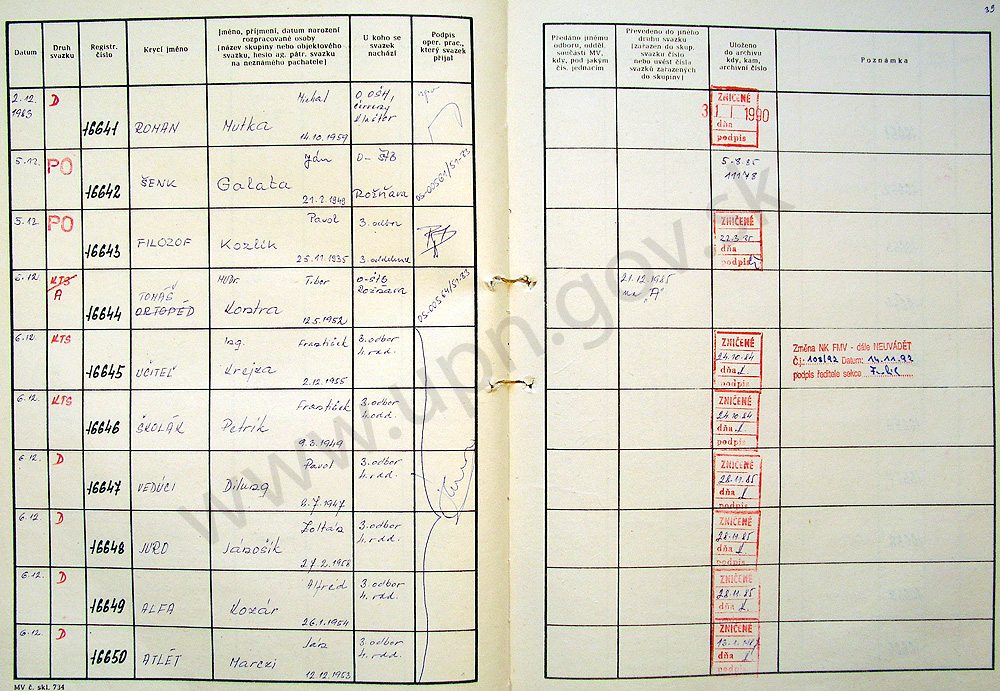 39
Datum
Druh
svazku
Registr.
číslo
Krycí jméno
Jméno, příjmení, datum narození
rozpracované osoby
(název skupiny nebo objektového
svazku, heslo ag. pátr. svazku
na neznámého pachatele)
U koho se
svazek
nachází
Podpis
oper. prac.,
který svazek
přijal
Předáno jinému
odboru, odděl.
součásti MV,
kdy, pod jakým
čís. jednacím
Převedeno do jiného
druhu svazku
(zařazen do skup.
svazku číslo
nebo uvést čísla
svazků zařazených
do skupiny)
Uloženo
do archivu
kdy, kam,
archivní číslo
Poznámka
2.12.
1983
D
16641
ROMAN
Michal
Mutka
14.10.1959
ZNIČENÉ
31. 1. 1990
dňa
podpis
5.12.
PO
16642
ŠENK
Ján
Galata
21.2.1949
O-ŠTB
Rožňava
5-8.85
11178
5.12.
PO
16643
FILOZOF
Pavol
Kozlik
25.11.1935
3. odbor
3. oddelenie
ZNIČENÉ
22.3.85
dňa
podpis
6.12.
KTS
A
16644
TOMÁŠ
ORTOPÉD
MUDr. Tibor
Kostra
12.5.1952
O-ŠTB
Rožňava
21.12.1985
na "A"
6.12.
KTS
16645
UČITEĽ
Ing. František
Krejza
2.12.1955
3. odbor
4. odd.
ZNIČENÉ
24.10.84
dňa
podpis
Změna NK FMV - dále NEUVÁDĚT
Č.j.: 108/92 Datum: 14.11.92
podpis ředitele sekce
6.12.
KTS
16646
ŠKOLÁK
František
Petrík
9.3.1949
3. odbor
4. odd.
ZNIČENÉ
24.10.84
dňa
podpis
6.12.
D
16647
VEDÚCI
Pavol
3. odbor
4. odd.
ZNIČENÉ
28.11.85
dňa
podpis
6.12.
D
16648
JURO
Zoltán
Jánošík
27.2.1958
3. odbor
4. odd.
ZNIČENÉ
28.11.85
dňa
podpis
6.12.
D
16649
ALFA
Alfréd
Kozár
26.1.1954
3. odbor
4. odd.
ZNIČENÉ
28.11.85
dňa
podpis
6.12.
D
16650
ATLÉT
Ján
Marczi
12.12.1953
3. odbor
4. odd.
ZNIČENÉ
dňa
podpis
MV č. skl. 734
www.upn.gov.sk